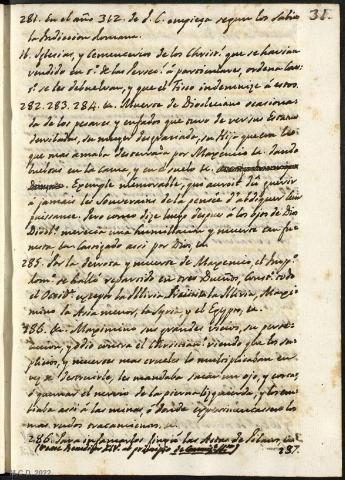 31.
281. En el año 312. de J. C. empieza segun los Sabios
la Indiccion Romana.
it. Iglesias, y Cementerios de los Christ.s que se havian
vendido en t.po de las Persec.s á particulares, ordena Cons.
se les debuelvan, y que el Fisco indemnize á estos.
282. 283. 284. &a. Muerte de Diocleciano ocasiona-
da de los pesares y enfados que tuvo de verse Estatuas
derribadas, su muger desgraciada, su Hija que era lo
que mas amaba desterrada por Maxencio &a. dando
bueltas en la cama, y en el suelo &a.
Exemple memorable, que auroit dû guerir
à jamais les Souverains de la pensée d'abdiquer leur
puissance. Pero como dize luego despues á los ojos de Dios
Diocl.o merecia una humillacion y muerte tan fu-
nesta tan castigado assi por Dios, &a
285. Por la derrota y muerte de Maxencio, el Imp.o
Rom.o se halló repartido en tres Dueños. Const.o todo
el Occid.te excepto la Illiria, Licinio la Illiria, Maxi-
mino la Asia menor, la Syria, y el Egypto, &a.
286. &a. Maximino sus grandes vicios, su perse-
cucion, y odio contra el Christian.o viendo que los su-
plicios, y muertes mas crueles lo multiplicaban en
vez de destruirle, les mandaba sacar un ojo, y cortar,
ó quemar el nervio de la pierna izquierda, y los en-
biaba assi a las minas, ó donde experimentassen los
mas rudos tratamientos. &a.
286. Para infamarlos fingia las Actas de Pilato, &a
(Vease Benedicto XIV. al principio de
287.
C.D. 2022